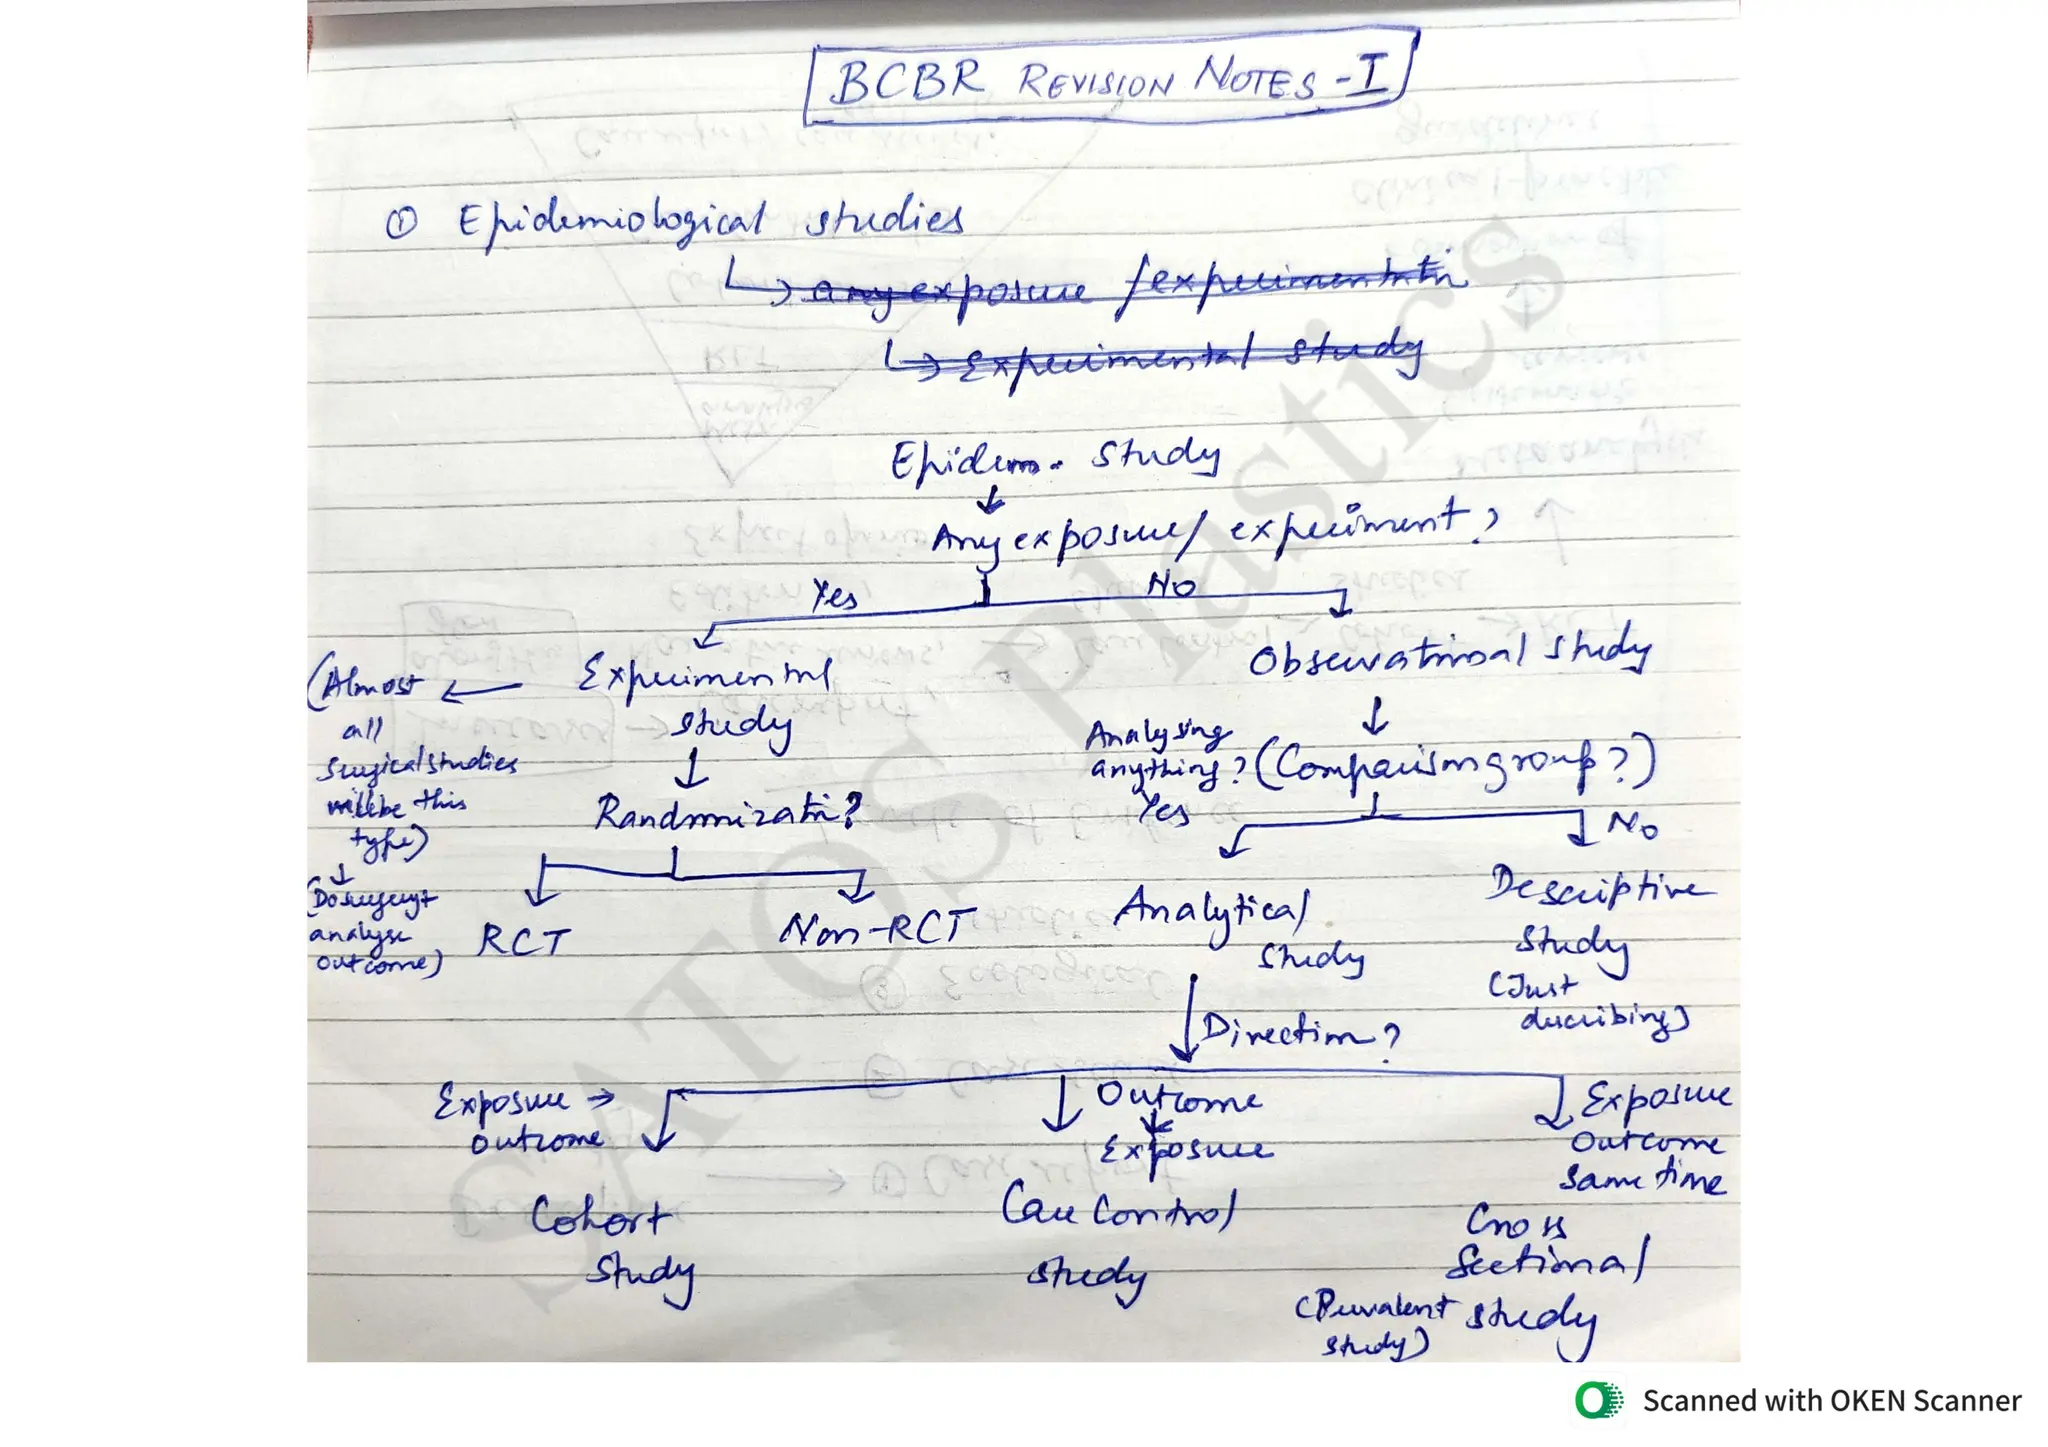 BCBR REVISION NOTES - I
① Epidemiological studies
↳ any exposure / experimentatn
↳ Experimental study
Epidem. study
↓
Any exposure/ experiment?
Yes
No
Experimental
study
Observational study
(Almost ←
all
surgical studies
will be this
type)
↓
(Do surgery &
analyse
outcome)
↓
Randomizatn?
RCT
Non-RCT
↓
Analysing
anything? (Comparison group?)
Yes
No
Analytical
study
Descriptive
study
(Just
describing)
Direction?
Exposure →
outcome
Outcome
↓
Exposure
Exposure
Outcome
same time
Cohort
study
Case Control
study
Cross
Sectional
study
(Prevalent
study)
SATOS Plastics
Scanned with OKEN Scanner